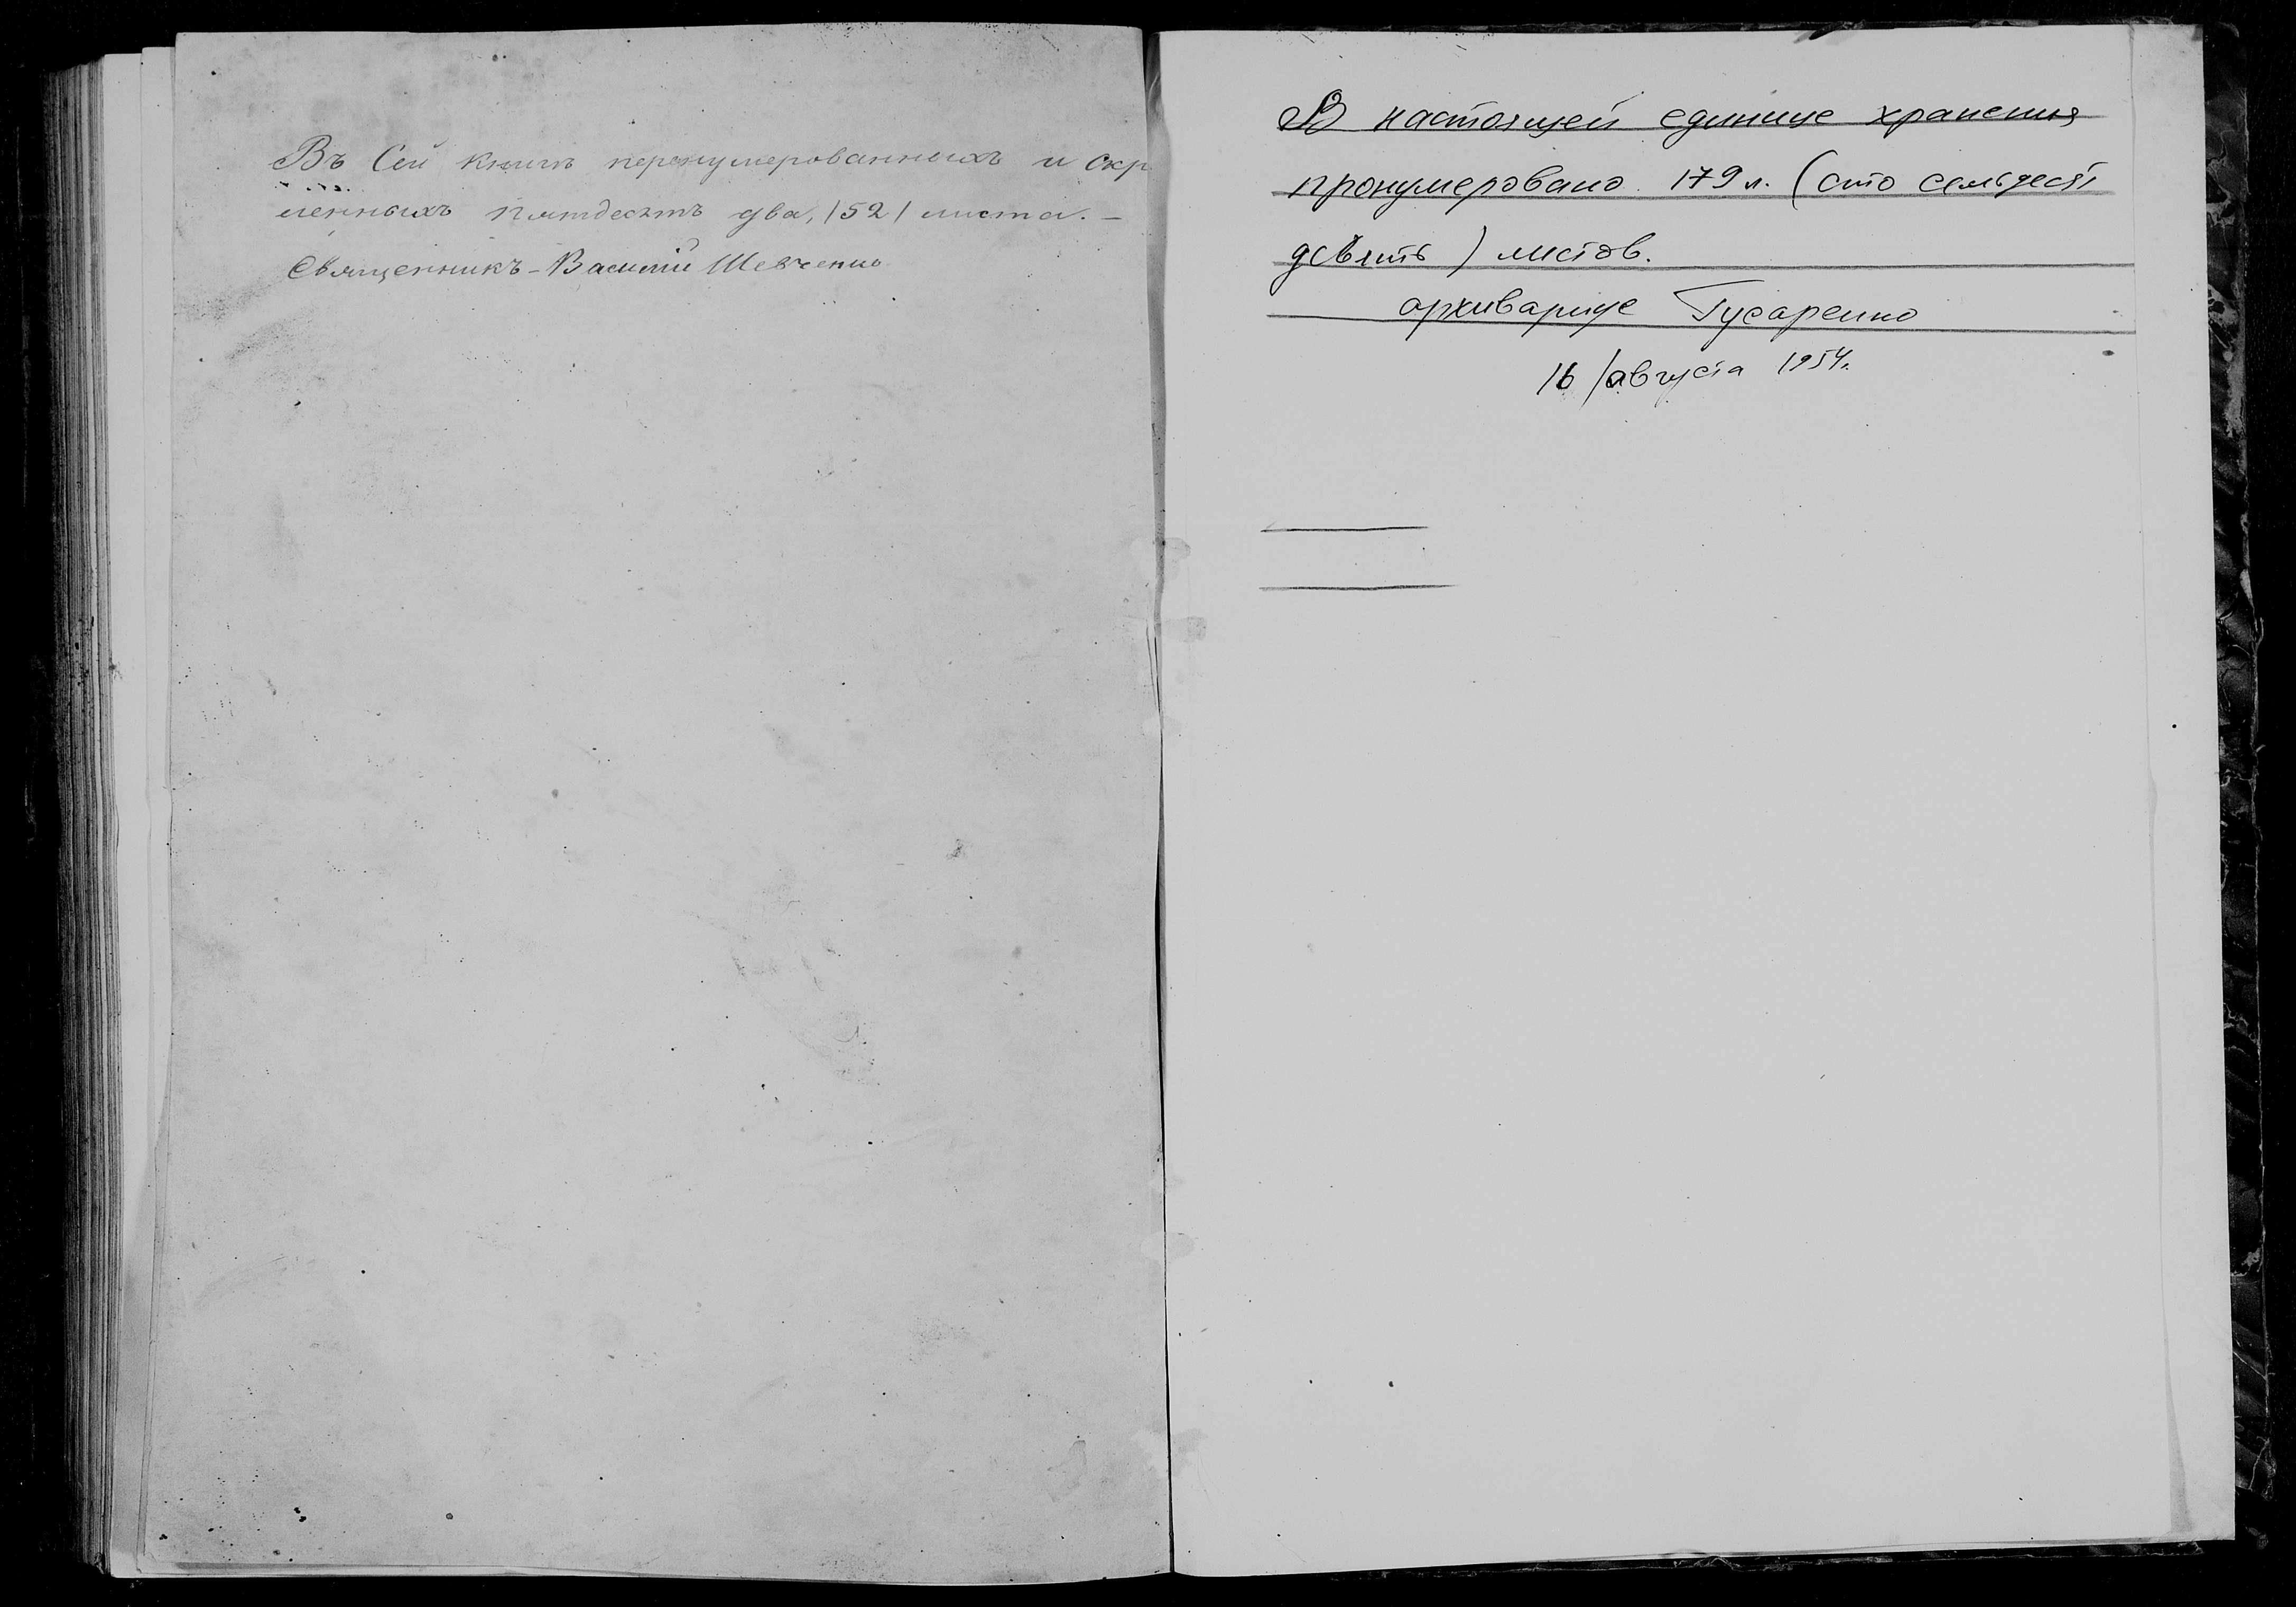 Въ Сей книгѣ перенумерованныхъ и скр
ленныхъ пятдесятъ два, /52/ листа. –
Священникъ – Василій Шевченко
В настоящей единице хранения
пронумеровано 179 л. (сто семьдесят
девять) листов.
архивариус Гусаренко
16/августа 1954.